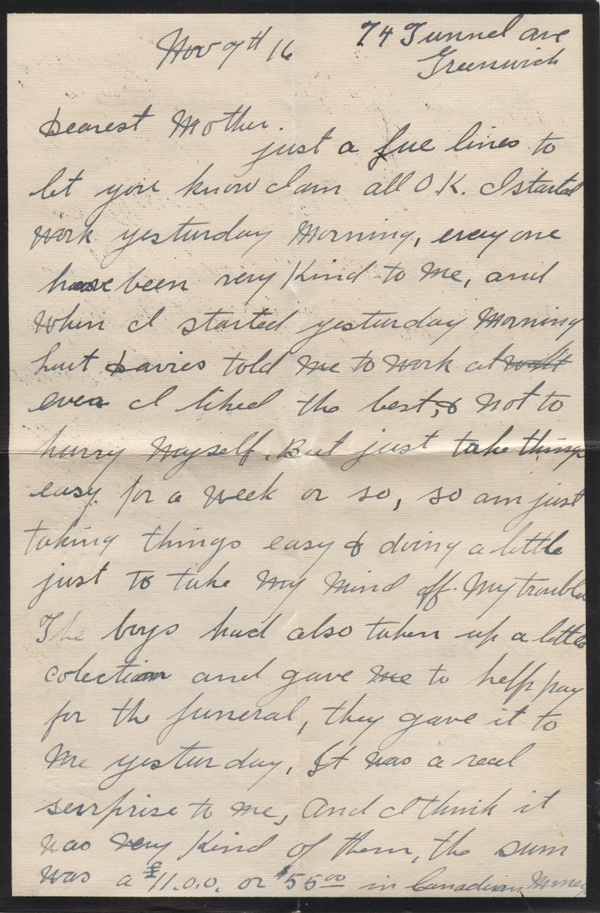 Nov 7th 16
74 Tunnel ave
Greenwich
Dearest Mother.
just a fue lines to
let you know I am all O.K. I started
work yesterday Morning, every one
have been very kind to me, and
when I started yesterday Morning
Davies told me to work at
ever I liked the best, & not to
hurry myself. But just take things
easy for a week or so, so am just
taking things easy & doing a little
just to take my mind off my trouble
The boys had also taken up a little
colection and gave me to help pay
for the funeral, they gave it to
me yesterday. It was a real
serprise to me, and I think it
was very kind of them, the sum
was a £11.0.0. or $55.00 in Canadian Money